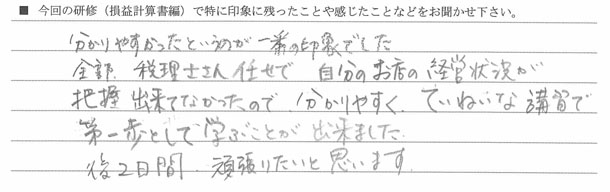 ■ 今回の研修（損益計算書編）で特に印象に残ったことや感じたことなどをお聞かせ下さい。
分かりやすかったというのが一番の印象でした
全部 税理士さん任せで 自分のお店の経営状況が
把握出来てなかったので 分かりやすく、ていねいな講習で
第一歩として学ぶことが出来ました。
後2日間、頑張りたいと思います。